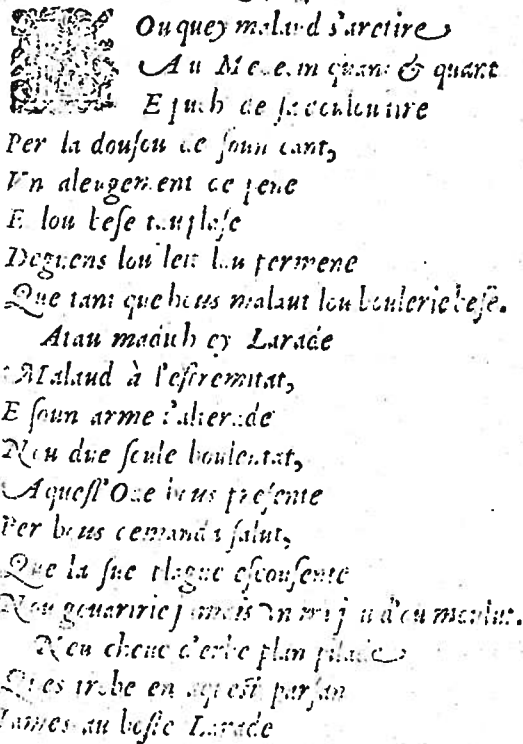 LOuquey malaud s'aretire
Au Medecin quant & quant
E puch de sa coulou tire
Per la dousou de soun cant,
Vn aleugement de pene
E lou bese
Deguens lou leit lou permene
Que tant que bous malaut lou boulerie bese.
Atau madich ey Larade
Malaud à l'estremitat,
E soun arme l'alterade
N'eu due seule boulentat,
Aquest'Ode bous presente
Per bous demanda salut,
Que la sue plague escousente
Nou gouaririe jamais d'ou moulut.
N'eu cheuc d'erbe plan pilade
Qu'es trobe en aquest parsan
James au boste Larade